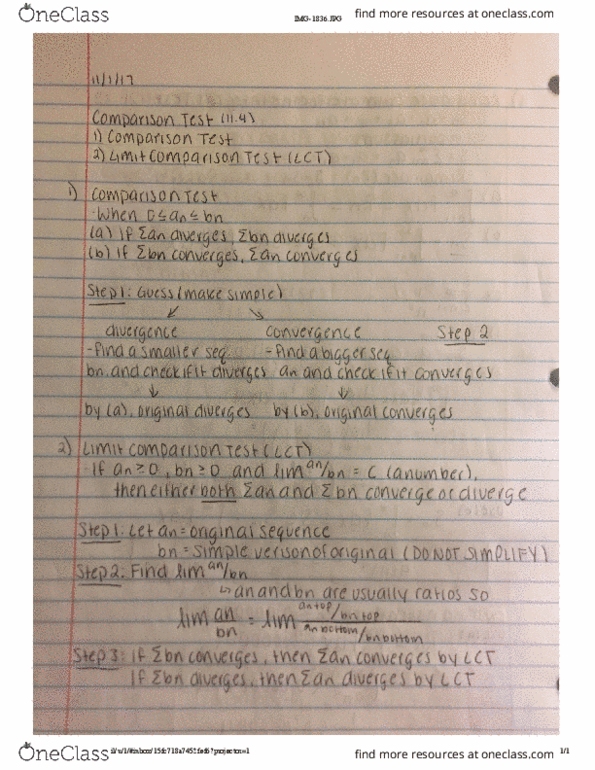 OneClass
IMG-1836.JPG
find more resources at oneclass.com
11/1/17
Comparison Test (11.4)
1) Comparison Test
2) Limit Comparison Test (LCT)
1) Comparison Test
-When 0≤an≤bn
(a) if Σan diverges, Σbn diverges
(b) if Σbn converges, Σan converges
Step 1: Guess (make simple)
↙ ↘
divergence convergence Step 2
-Find a smaller seq -Find a bigger seq
bn and check if it diverges an and check if it converges
↓ ↓
by (a), original diverges by (b), original converges
2) Limit Comparison Test (LCT)
-If an≥0, bn≥0 and lim an/bn = C (a number),
then either both Σan and Σbn converge or diverge
Step 1: Let an = original sequence
bn = simple verison of original (DO NOT SIMPLIFY)
Step 2: Find lim an/bn
↳ an and bn are usually ratios so
lim an/bn = lim an top/bn top / an bottom/bn bottom
Step 3: if Σbn converges, then Σan converges by LCT
If Σbn diverges, then Σan diverges by LCT
OneClass
find more resources at oneclass.com
1/1